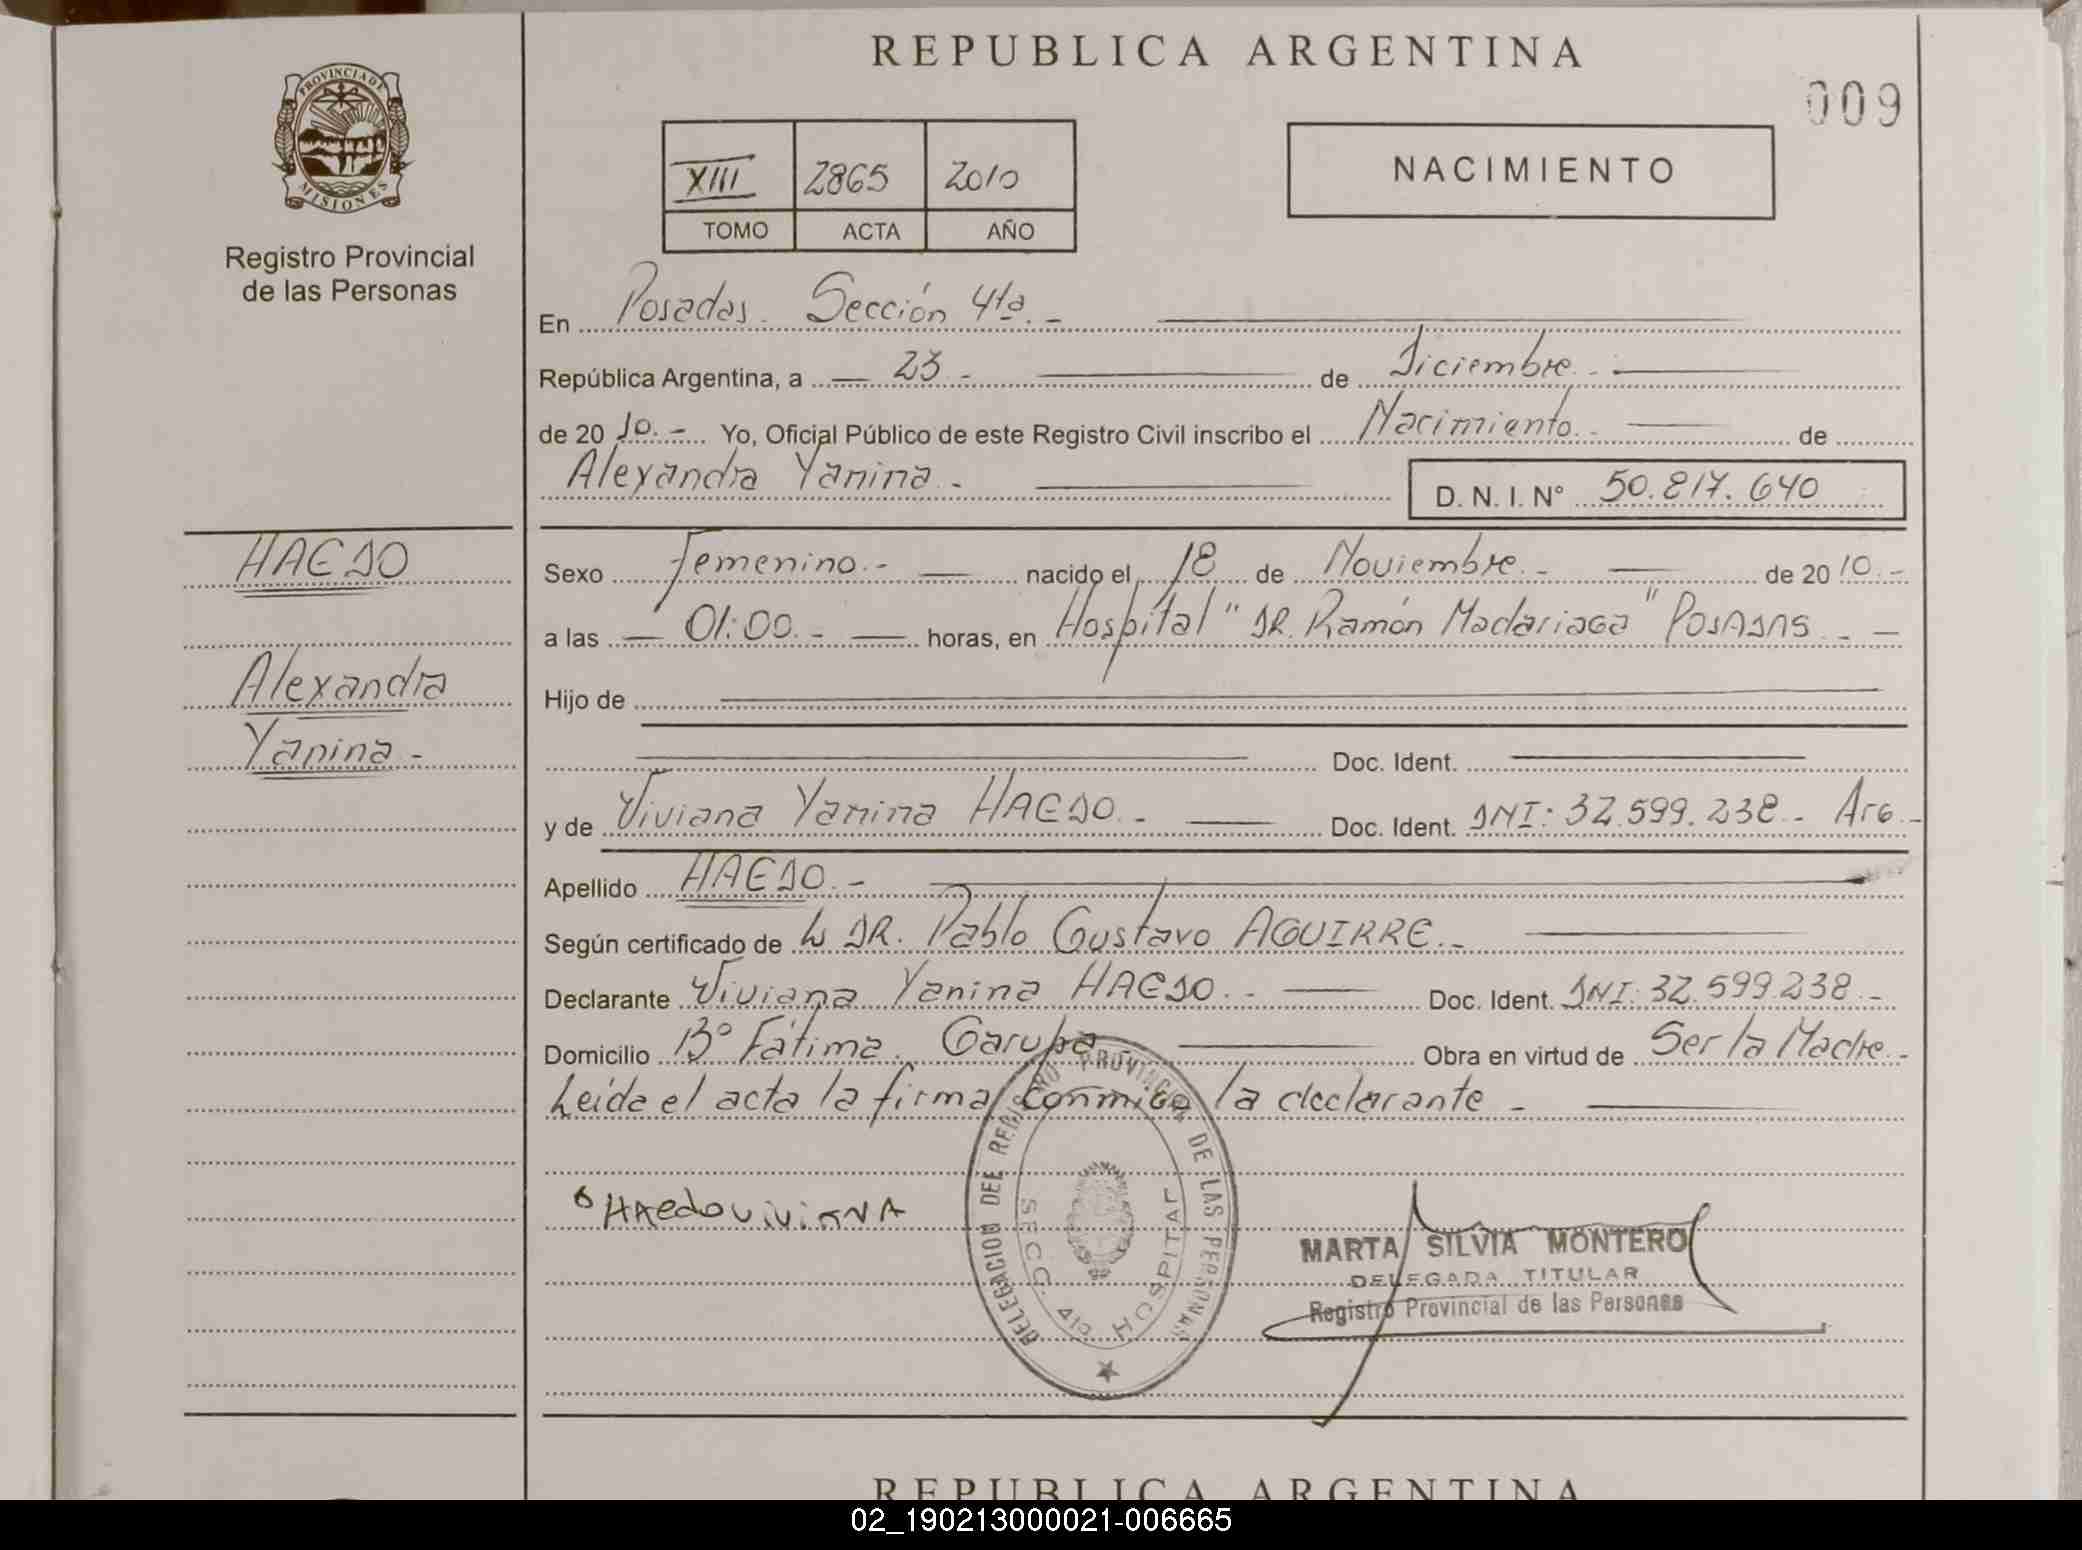 REPUBLICA ARGENTINA
009
PROVINCIA DE MISIONES
Registro Provincial
de las Personas
XIII 2865 2010
TOMO ACTA AÑO
NACIMIENTO
En Posadas. Sección 4ta. -
República Argentina, a 23 - de Diciembre. -
de 20 10. - Yo, Oficial Público de este Registro Civil inscribo el Nacimiento. de
Alexandra Yanina. -
D. N. I. N° 50.817.640
HAEDO
Alexandra
Yanina -
Sexo Femenino. - nacido el 18 de Noviembre. - de 20 10. -
a las 01:00. - horas, en Hospital "DR. Ramón Madariaga" POSADAS. -
Hijo de
Doc. Ident.
y de Viviana Yanina HAEDO. - Doc. Ident. DNI: 32.599.238. - Arg. -
Apellido HAEDO. -
Según certificado de DR. Pablo Gustavo AGUIRRE. -
Declarante Viviana Yanina HAEDO. - Doc. Ident. DNI: 32.599.238. -
Domicilio B° Fátima. Garupa Obra en virtud de Ser la Madre. -
Leída el acta la firma conmigo la declarante -
HAedo ViViANA
DELEGACION DEL REGISTRO PROVINCIAL DE LAS PERSONAS
SECC. 4ta HOSPITAL
MARTA SILVIA MONTERO
DELEGADA TITULAR
Registro Provincial de las Personas
REPUBLICA ARGENTINA
02_190213000021-006665